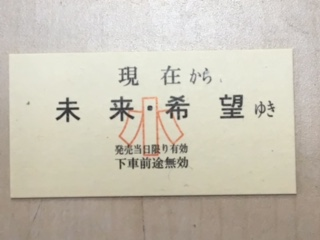 現在から
未来・希望ゆき
小
発売当日限り有効
下車前途無効